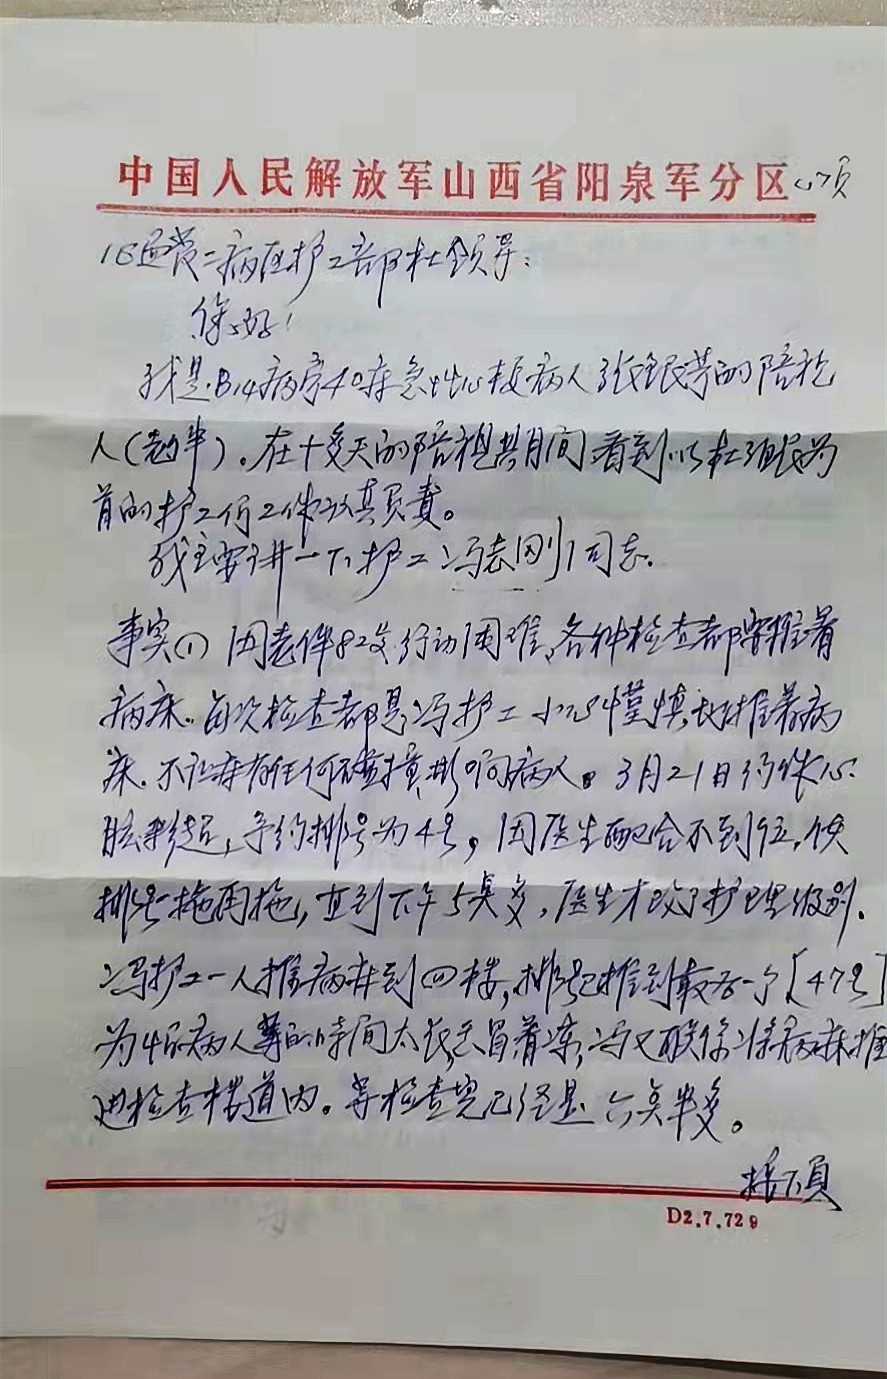 中国人民解放军山西省阳泉军分区 (1)页
病区护工部杜领导:
您好!
我是B14病房40床急性心梗病人张银芳的陪视
人(老伴)。在十多天的陪视其月间看到以杜组长为
首的护工们工作认真负责。
我主要讲一下护工冯志刚同志.
事实(1) 因老伴82岁行动困难,各种检查都要推着
病床..每次检查都是冯护工小心谨慎地推着病
床.不让床有任何碰撞,影响病人。3月21日约做心
脏彩超,予约排号为4号,因医生配合不到位,使
排号一拖再拖,直到下午5点多,医生才改了护理级别.
冯护工一人推病床到四楼,排号已推到最后一个[47号]
为怕病人等的时间太长、冒着凉,冯又联系将病床推
进检查楼道内。等检查完已经是六点半多。
接下页
D2.7.729